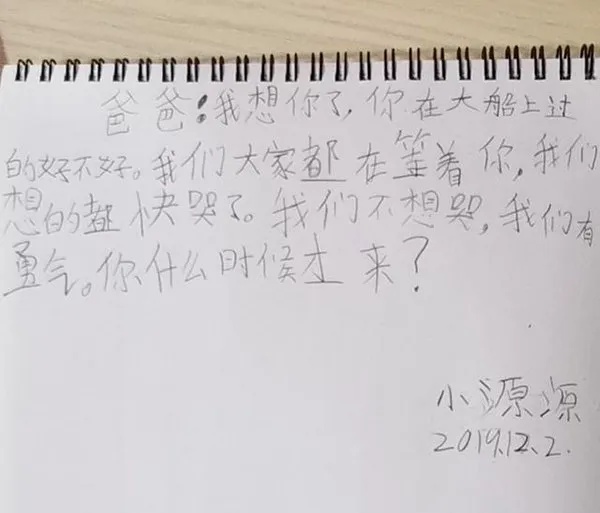 爸爸!我想你了,你在大船上过
的好不好。我们大家都在等着你,我们
想的都快哭了。我们不想哭,我们有
勇气。你什么时候才来?
小源源
2019.12.2.